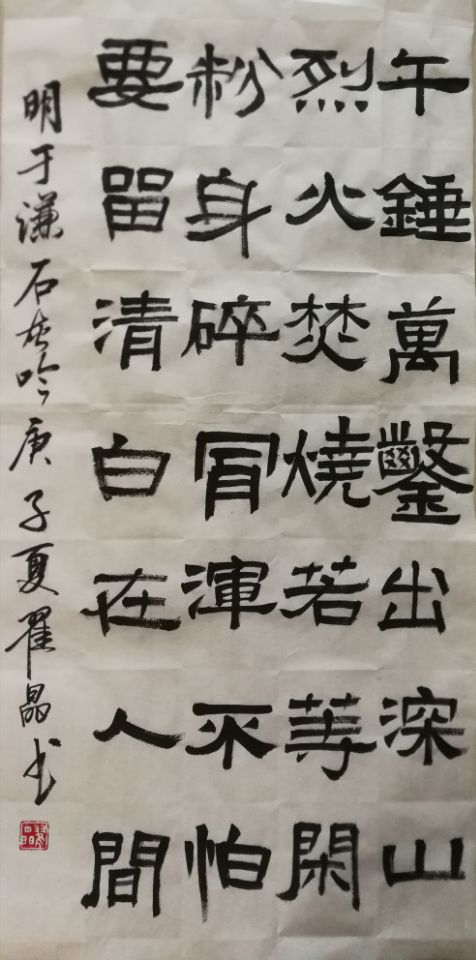 午錘萬鑿出深山
烈火焚燒若等閑
粉身碎骨渾不怕
要留清白在人間
明于谦石灰吟庚子夏瞿晶书